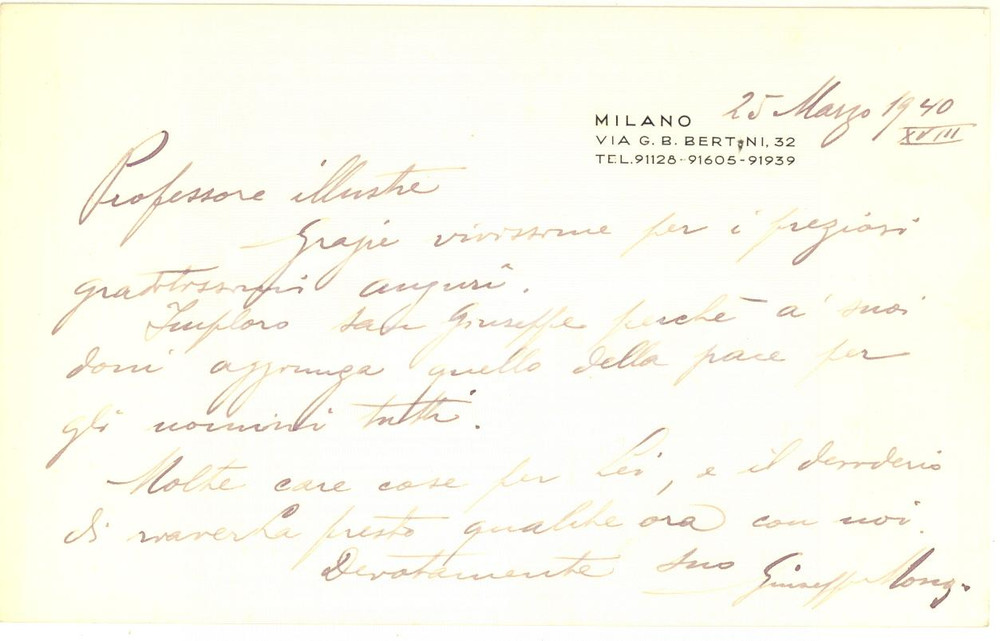 MILANO
25 Marzo 1940
XVIII
VIA G. B. BERTINI, 32
TEL. 91128-91605-91939
Professore illustre
Grazie vivissime per i preziosi
graditissimi auguri.
Imploro san Giuseppe perchè a' suoi
doni aggiunga quello della pace per
gli uomini tutti.
Molte care cose per Lei, e il desiderio
di riaverLa presto qualche ora con noi.
Devotamente suo Giuseppe